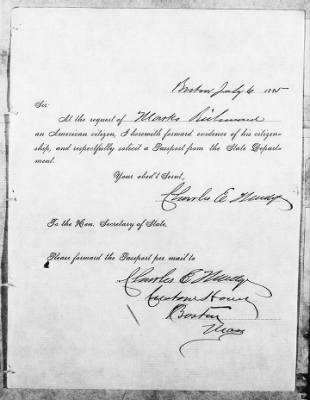 Boston July 6 1885
Sir:
At the request of Marks
an American citizen, I herewith forward evidence of his citizen-
ship, and respectfully solicit a Passport from the State Depart-
ment.
Your obed't Servt,
Charles E
To the Hon. Secretary of State.
Please forward the Passport per mail to
Charles E
Custom House
Boston
Mass